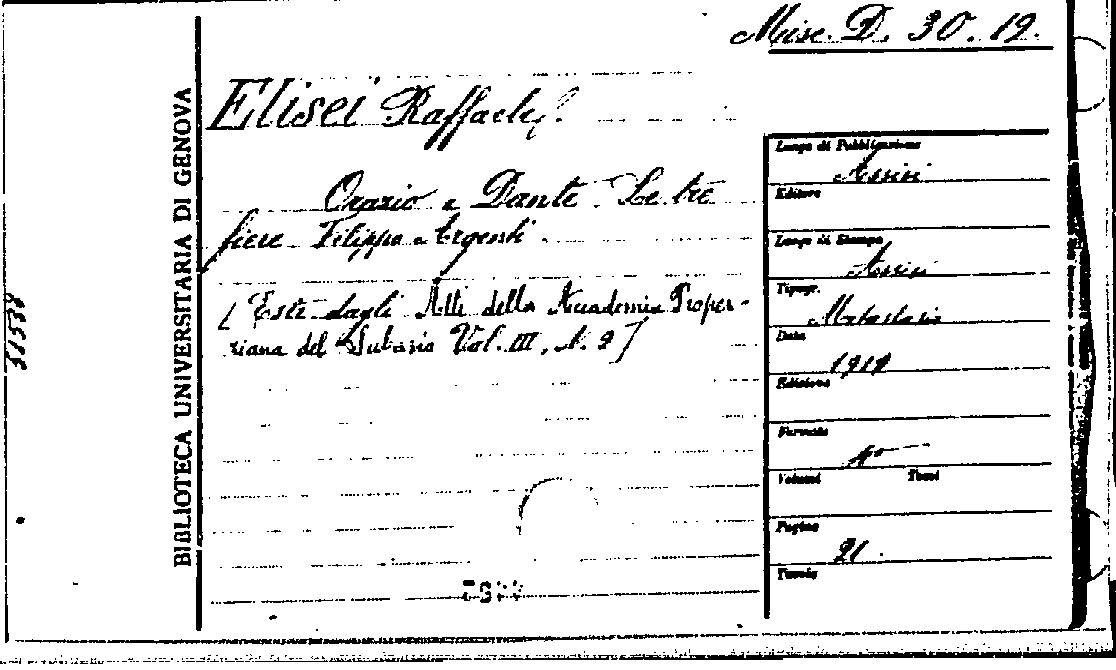 Misc. D. 30. 19.
Elisei Raffaele
Orazio e Dante. Le tre
fiere Filippo Argenti.
[Estr. dagli Atti della Accademia Proper-
ziana del Subasio Vol. III, N. 9]
BIBLIOTECA UNIVERSITARIA DI GENOVA
Luogo di Pubblicazione
Assisi
Editore
Luogo di Stampa
Assisi
Tipogr.
Metastasio
Data
Edizione
Formato
Volumi Tomi
Pagine
21.
Tavole